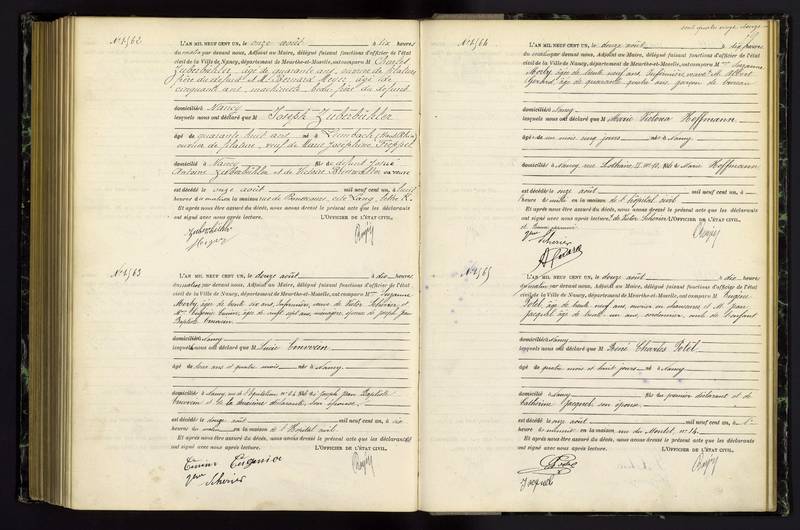 N° 1562
L'AN MIL NEUF CENT UN, le onze août à dix heures
du matin par devant nous, Adjoint au Maire, délégué faisant fonctions d'officier de l'état
civil de la Ville de Nancy, département de Meurthe-et-Moselle, ont comparu M Charles
Zuberbühler, âgé de quarante ans, ouvrier de filature
frère du défunt et M. Bernard Meyer, âgé de
cinquante ans, machiniste, beau-frère du défunt
domiciliés à Nancy
lesquels nous ont déclaré que M Joseph Zuberbühler
âgé de quarante huit ans né à Leimbach (Haut-Rhin)
ouvrier de filature, veuf de Marie Joséphine
domicilié à Nancy fils de défunt
Antoine Zuberbühler et de Victoire sa veuve
est décédé le onze août mil neuf cent un, à huit
heures du matin en la maison rue de cité Lang, lettre K.
Et après nous être assuré du décès, nous avons dressé le présent acte que les déclarants
ont signé avec nous après lecture. L'OFFICIER DE L'ÉTAT CIVIL,
Zuberbühler
Meyer
N° 1563
L'AN MIL NEUF CENT UN, le douze août à dix heures
du matin par devant nous, Adjoint au Maire, délégué faisant fonctions d'officier de l'état
civil de la Ville de Nancy, département de Meurthe-et-Moselle, ont comparu Mme Suzanne
Morly, âgée de trente six ans, infirmière, veuve de Victor Scherier, et
Mme Eugénie âgée de vingt sept ans, ménagère, épouse de Joseph Jean
Baptiste
domiciliés à Nancy
lesquels nous ont déclaré que M Lucie
âgée de deux ans et quatre mois née à Nancy
domiciliée à Nancy, rue de n° 64 fille de Joseph Jean Baptiste
et de la deuxième déclarante, son épouse
est décédée le douze août mil neuf cent un, à six
heures du en la maison de l'Hôpital civil
Et après nous être assuré du décès, nous avons dressé le présent acte que les déclarants
ont signé avec nous après lecture. L'OFFICIER DE L'ÉTAT CIVIL,
Eugénie
Scherier
cent quatre vingt
N° 1564
L'AN MIL NEUF CENT UN, le douze août à dix heures
du matin par devant nous, Adjoint au Maire, délégué faisant fonctions d'officier de l'état
civil de la Ville de Nancy, département de Meurthe-et-Moselle, ont comparu Mme Suzanne
Morly, âgée de trente neuf ans, infirmière, veuve et Albert
âgé de quarante quatre ans, garçon de bureau
domiciliés à Nancy
lesquels nous ont déclaré que M Marie Victoria Hoffmann
âgée de un mois cinq jours née à Nancy
domiciliée à Nancy, rue Lothaire II, N° 10, fille de Marie Hoffmann
est décédée le onze août mil neuf cent un, à
heures du matin en la maison de l'hôpital civil
Et après nous être assuré du décès, nous avons dressé le présent acte que les déclarants
ont signé avec nous après lecture. de Victor Scherier L'OFFICIER DE L'ÉTAT CIVIL,
Scherier
N° 1565
L'AN MIL NEUF CENT UN, le douze août à dix heures
du matin par devant nous, Adjoint au Maire, délégué faisant fonctions d'officier de l'état
civil de la Ville de Nancy, département de Meurthe-et-Moselle, ont comparu M Eugène
Potel, âgé de trente neuf ans, ouvrier en chaussures et M. Jean
Jacquel, âgé de trente un ans, cordonnier, oncle de l'enfant
domiciliés à Nancy
lesquels nous ont déclaré que M René Charles Potel
âgé de quatre mois et huit jours né à Nancy
domicilié à Nancy fils du premier déclarant et de
Catherine Jacquel, son épouse
est décédé le onze août mil neuf cent un, à
heures de en la maison rue du Montet, n° 14
Et après nous être assuré du décès, nous avons dressé le présent acte que les déclarants
ont signé avec nous après lecture. L'OFFICIER DE L'ÉTAT CIVIL,
Potel
Jacquel